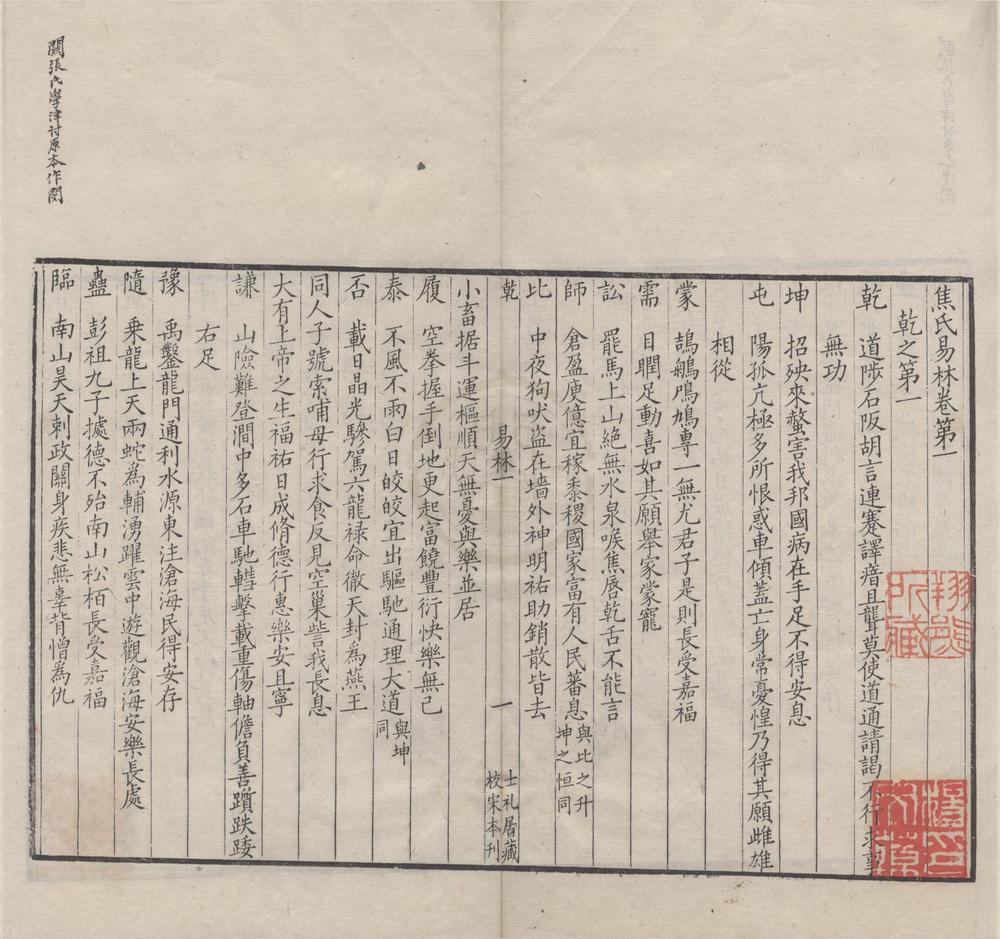 焦氏易林卷第一
乾之第一
乾 道陟石阪胡言連蹇譯瘖且聾莫使道通請謁不行求事
無功
坤 招殃來螫害我邦國病在手足不得安息
屯 陽孤亢極多所恨惑車傾蓋亡身常憂惶乃得其願雌雄
相從
蒙 鵠鵃鳲鳩專一無尤君子是則長受嘉福
需 目瞤足動喜如其願舉家蒙寵
訟 罷馬上山絶無水泉喉焦唇乾舌不能言
師 倉盈庾億宜稼黍稷國家富有人民蕃息與比之升坤之恒同
比 中夜狗吠盜在墻外神明祐助銷散皆去
乾 易林一 一 士礼居藏校宋本刊
小畜据斗運樞順天無憂與樂並居
履 空拳握手倒地更起富饒豐衍快樂無已
泰 不風不雨白日皎皎宜出驅馳通理大道與坤同
否 載日晶光驂駕六龍禄命徹天封為燕王
同人子號索哺母行求食反見空巢訾我長息
大有上帝之生福祐日成脩德行惠樂安且寧
謙 山險難登澗中多石車馳轊擊載重傷軸儋負善躓跌踒
右足
豫 禹鑿龍門通利水源東注滄海民得安存
隨 乘龍上天兩蛇為輔湧躍雲中遊觀滄海安樂長處
蠱 彭祖九子據德不殆南山松栢長受嘉福
臨 南山昊天刺政關身疾悲無辜背憎為仇
關張氏學津討原本作閔